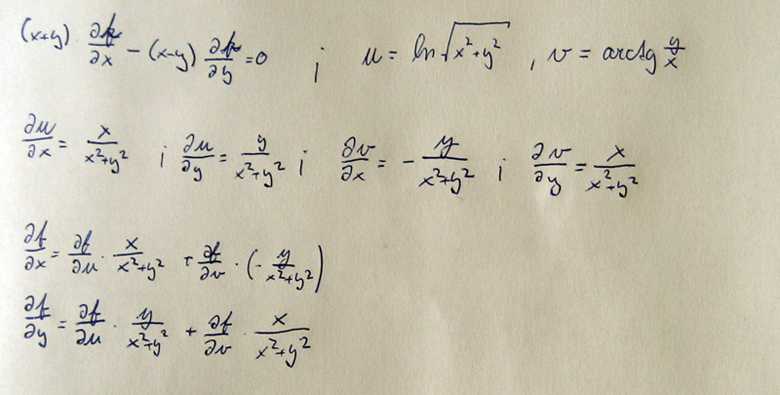 (x+y) ∂f/∂x - (x-y) ∂f/∂y = 0 ; u = ln √(x²+y²) , v = arctg y/x
∂u/∂x = x/(x²+y²) ; ∂u/∂y = y/(x²+y²) ; ∂v/∂x = - y/(x²+y²) ; ∂v/∂y = x/(x²+y²)
∂f/∂x = ∂f/∂u · x/(x²+y²) + ∂f/∂v · (- y/(x²+y²))
∂f/∂y = ∂f/∂u · y/(x²+y²) + ∂f/∂v · x/(x²+y²)